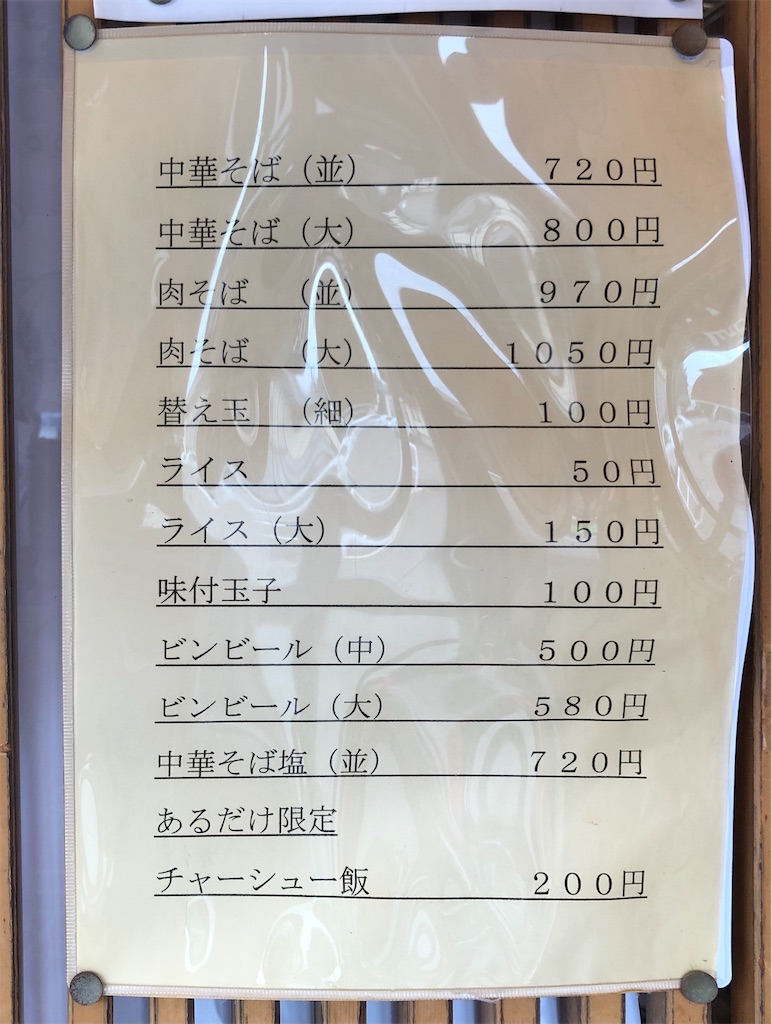 中華そば（並） ７２０円
中華そば（大） ８００円
肉そば （並） ９７０円
肉そば （大） １０５０円
替え玉 （細） １００円
ライス ５０円
ライス（大） １５０円
味付玉子 １００円
ビンビール（中） ５００円
ビンビール（大） ５８０円
中華そば塩（並） ７２０円
あるだけ限定
チャーシュー飯 ２００円